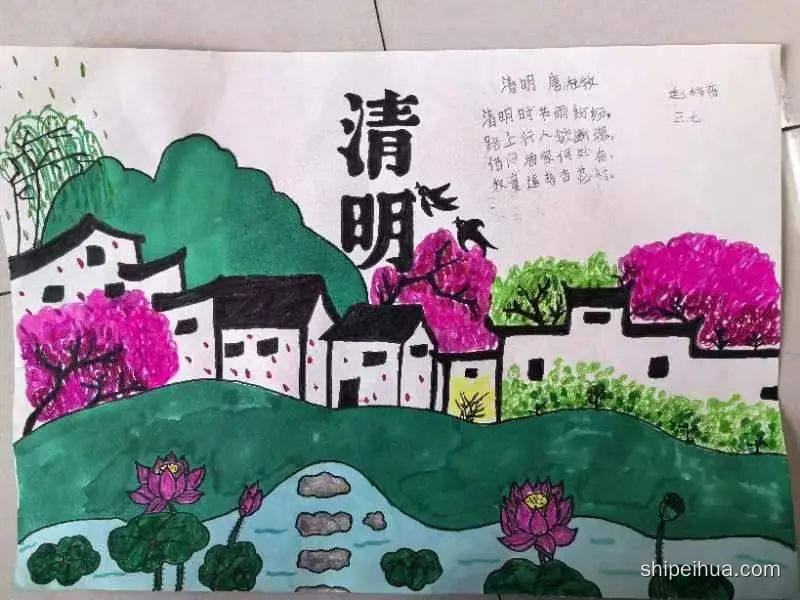 清明
清明 唐 杜牧
清明时节雨纷纷。
路上行人欲断魂。
借问酒家何处有。
牧童遥指杏花村。
三七
shipeihua.com